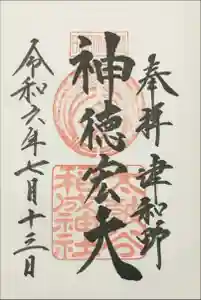 奉拝 津和野
神徳宏大
太皷谷
稲成神社
令和六年七月十三日